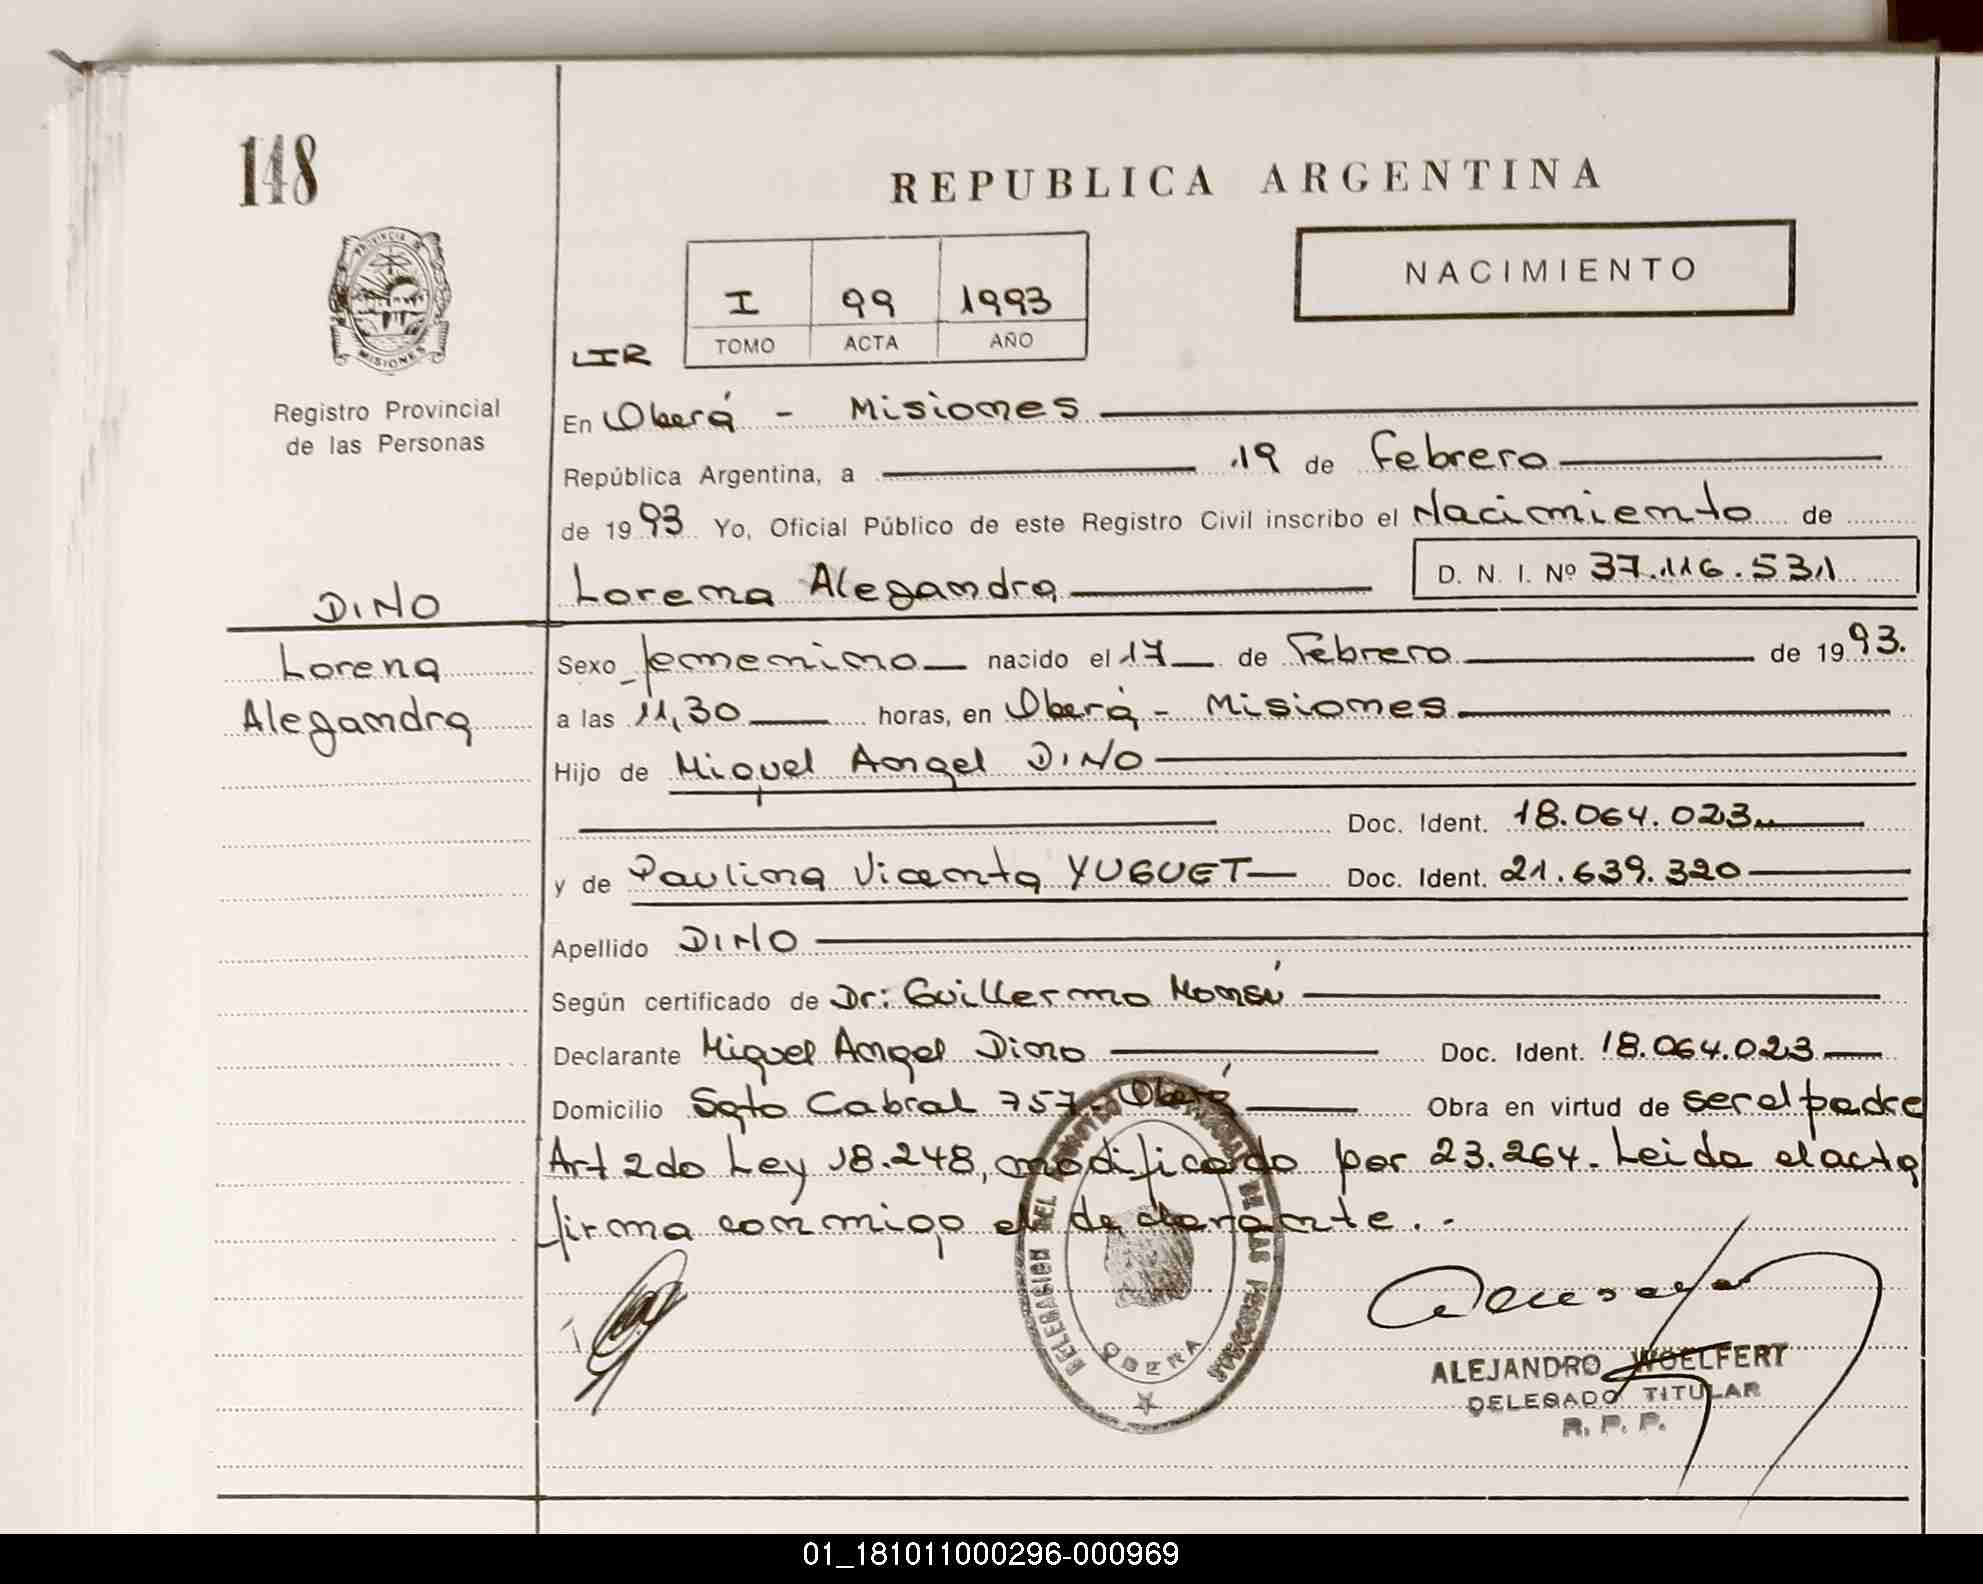 148
REPUBLICA ARGENTINA
PROVINCIA DE MISIONES
NACIMIENTO
I 99 1993
TOMO ACTA AÑO
LIR
Registro Provincial
de las Personas
En Oberá - Misiones
República Argentina, a 19 de Febrero
de 1993 Yo, Oficial Público de este Registro Civil inscribo el Nacimiento de
Lorena Alegandra D. N. I. Nº 37.116.531
DINO
Lorena
Alegandra
Sexo femenino nacido el 17 de Febrero de 1993.
a las 11,30 horas, en Oberá - Misiones
Hijo de Miguel Angel DINO
Doc. Ident. 18.064.023
y de Paulina Vicenta YUGUET Doc. Ident. 21.639.320
Apellido DINO
Según certificado de Dr: Guillermo
Declarante Miguel Angel Dino Doc. Ident. 18.064.023
Domicilio Sgto Cabral 757 - Oberá Obra en virtud de ser el padre
Art 2do Ley 18.248, modificado por 23.264. Leida el acta
firma conmigo el declarante. -
OBERA
ALEJANDRO WOELFERT
DELEGADO TITULAR
R. P. P.
01_181011000296-000969